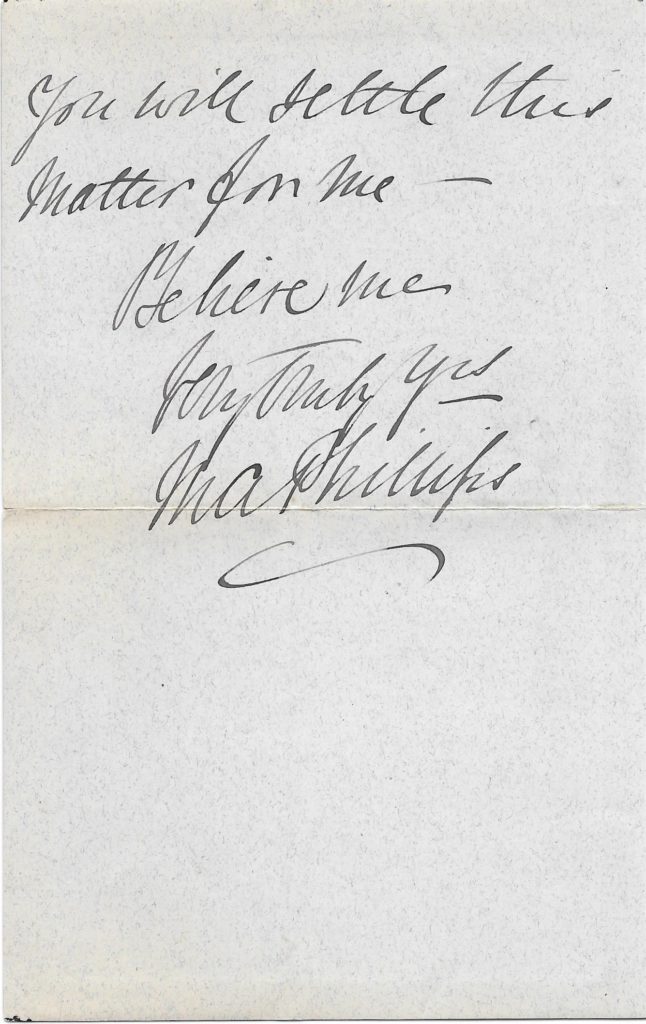 You will settle this
matter for me —
Believe me
Very truly yrs
M A Phillips